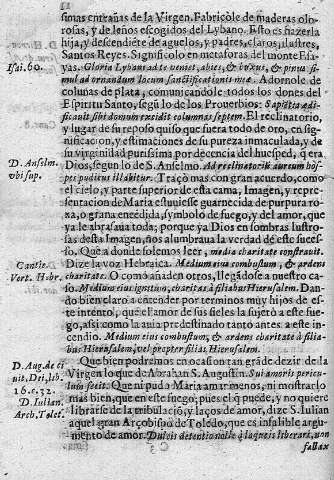 simas entrañas de la Virgen. Fabricòle de maderas olo-
rosas, y de leños escogidos del Lybano. Esto es hazerla
hija, y descendiẽte de aguelos, y padres, claros, ilustres,
Santos Reyes. Significòlo en metafora del monte Esa-
Isai. 60.
yas. Gloria Lybani ad te veniet, abies, & buxus, & pinus si-
mul ad ornandum locum sanctificationis meæ. Adornòle de
colunas de plata, comunicandole todos los dones del
Espiritu Santo, segũ lo de los Prouerbios: Sapiẽtia ædi-
ficauit sibi domum excidit columnas septem. El reclinatorio,
y lugar de su reposo quiso que fuera todo de oro, en sig-
nificacion, y estimaciones de su pureza inmaculada, y de
su virginidad purissima por decencia del huesped, q̃ era
D. Anselm.
vbi sup.
Dios, segun lo de S. Anselmo. Ad reclinatoriũ aureum hos-
pes pudicus illabitur. Traçò mas con gran acuerdo, como
el cielo, y parte superior de esta cama, Imagen, y repre-
sentacion de Maria estuuiesse guarnecida de purpura ro-
xa, o grana encẽdida, symbolo de fuego, y del amor, que
ya le abrasaua toda; porque ya Dios en sombras lustro-
sas desta Imagen, nos alumbraua la verdad de este suces-
so. Que a donde solemos leer, media charitate constrauit.
Cantic.
Vers. Hebr.
Dize la voz Hebraica. Medium eius combustum, & ardens
charitate. O como añaden otros, llegãdose a nuestro ca-
so. Medium eius ignitum, charitas à filiabus Hierusalem. Dan-
do bien claro a entender por terminos muy hijos de es-
te intento, que el amor de sus fieles la sujetò a este fue-
go, assi como la auia predestinado tanto antes a este in-
cendio. Medium eius combustum, & ardens charitate à filia-
bus Hierusalem, vel propter filias Hierusalem.
Que bien podriamos en ocasion tan grãde dezir de la
D. Aug. de ci
uit. Dei, lib.
16. c. 32.
Virgen lo que de Abrahan S. Augustin. Sui amoris pericu-
lum fecit. Que ni pudo Maria amar menos, ni mostrarlo
mas bien, que en este fuego; pues el q̃ puede, y no quiere
D. Iulian.
Arch. Tolet.
librarse de la tribulaciõ, y laços de amor, dize S. Iulian
aquel gran Arçobispo de Toledo, que es infalible argu-
mento de amor. Dulcis detentio nolle q̃ laqueis liberari, non
fallax